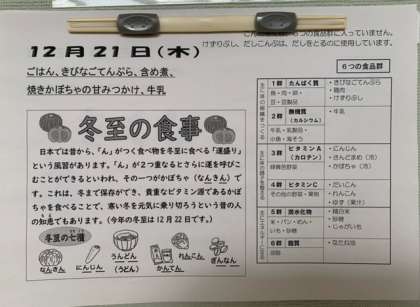 こんだては、６つの食品群に入っていません。
けずりぶし、だしこんぶは、だしをとるのに使用しています。
12月21日(木)
ごはん、きびなごてんぷら、含め煮、
焼きかぼちゃの甘みつかけ、牛乳
冬至の食事
日本では昔から、「ん」がつく食べ物を冬至に食べる「運盛り」
という風習があります。「ん」が２重なるとさらに運を呼びこ
むことができるといわれ、その一つがかぼちゃ（なんきん）で
す。これは、冬まで保存ができ、貴重なビタミン源であるかぼ
ちゃを食べることで、寒い冬を元気に乗り切ろうという昔の人
の知恵でもあります。（今年の冬至は12月22日です。）
冬至の七種
なんきん
にんじん
うんどん
（うどん）
かんてん
れんこん
ぎんなん
６つの食品群
１群 たんぱく質
魚・肉・卵・
豆・豆製品
・きびなごてんぷら
・鶏肉
・けずりぶし
２群 無機質
（カルシウム）
牛乳・乳製品・
小魚・海そう
・牛乳
３群 ビタミンA
（カロテン）
緑黄色野菜
・にんじん
・さんどまめ（冷）
・かぼちゃ（冷）
４群 ビタミンC
その他の野菜・果物
・だいこん
・れんこん
・ゆず（果汁）
５群 炭水化物
米・パン・めん・
いも・砂糖
・精白米
・砂糖
・じゃがいも
６群 脂質
・なたね油